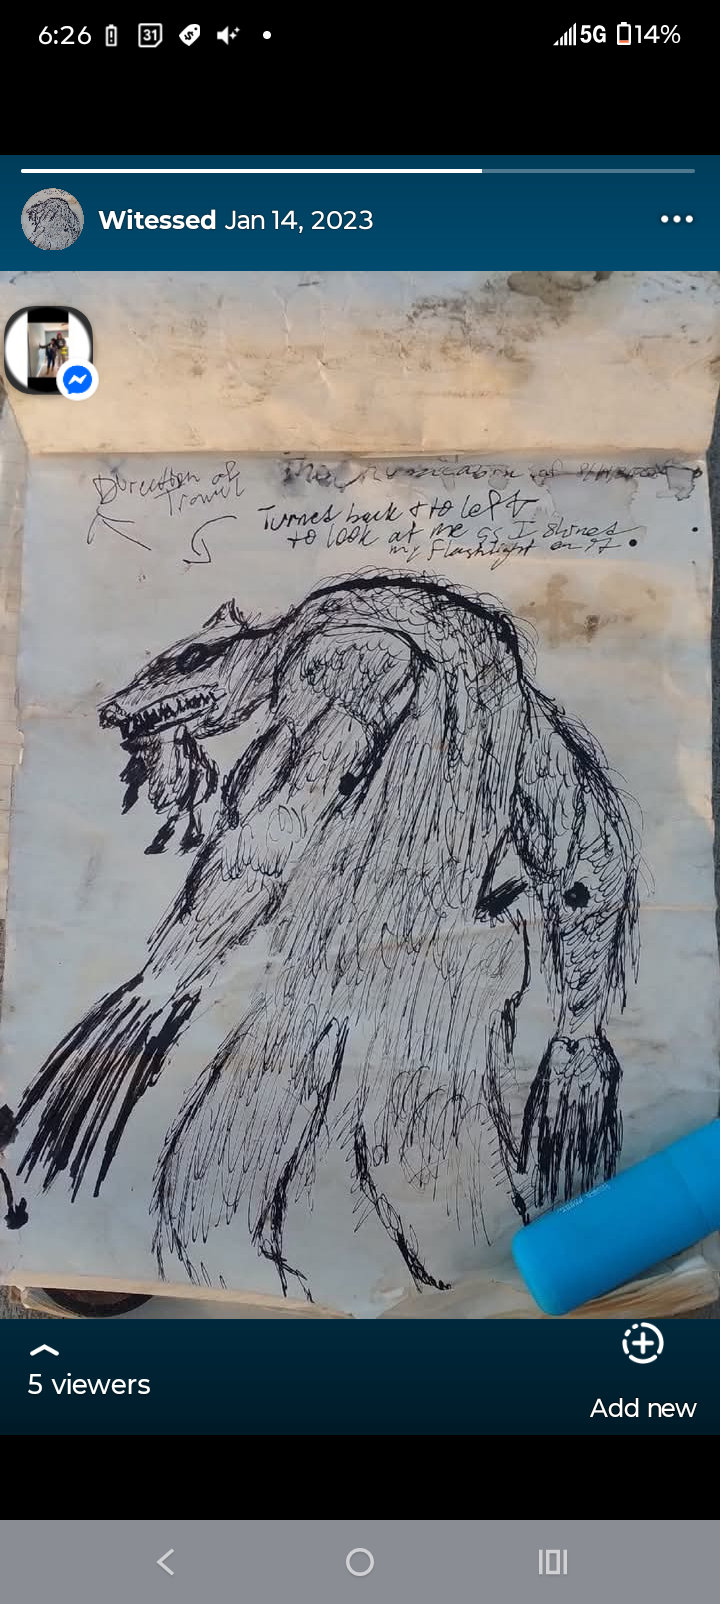 6:26
31
5G
14%
Witessed Jan 14, 2023
Direction of
Travel
of
Turned back & to left
to look at me as I shined
my flashlight on it.
5 viewers
Add new